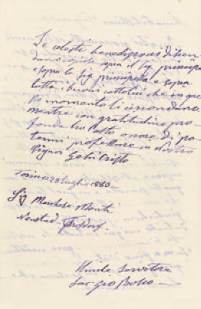 Le celesti benedizioni discen
dano copiose sopra il Sig. principe
e sopra la Sig. principessa e sopra
tutti i buoni cattolici che in que
sto momento li circondano
mentre con gratitudine pro
fonda ho l'alto onore di po
termi professare in nostro
Signor Gesù Cristo
Torino 28 luglio 1883
Umile Servitore
Sac. Gio Bosco